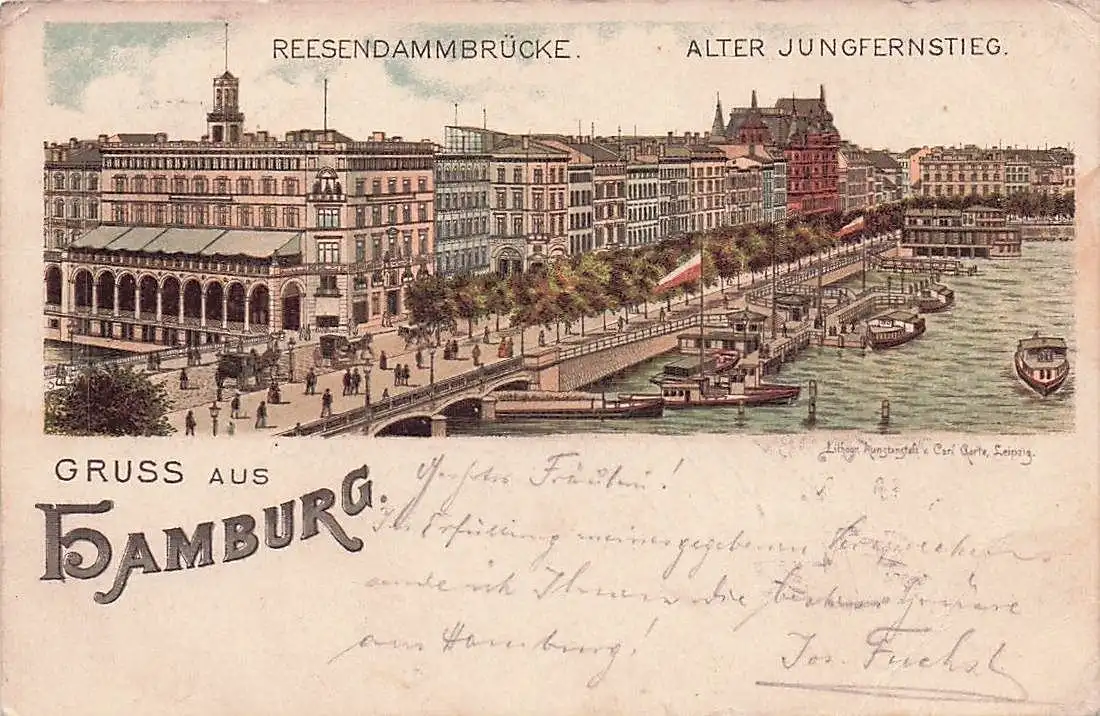 REESENDAMMBRÜCKE.
ALTER JUNGFERNSTIEG.
Lithogr. Kunstanstalt v. Carl Garte, Leipzig.
GRUSS AUS
HAMBURG.
Geehrtes Fräulein!
In Erfüllung meines gegebenen Versprechens
sende ich Ihnen die besten Grüsse
aus Hamburg!
Jos. Fuchs